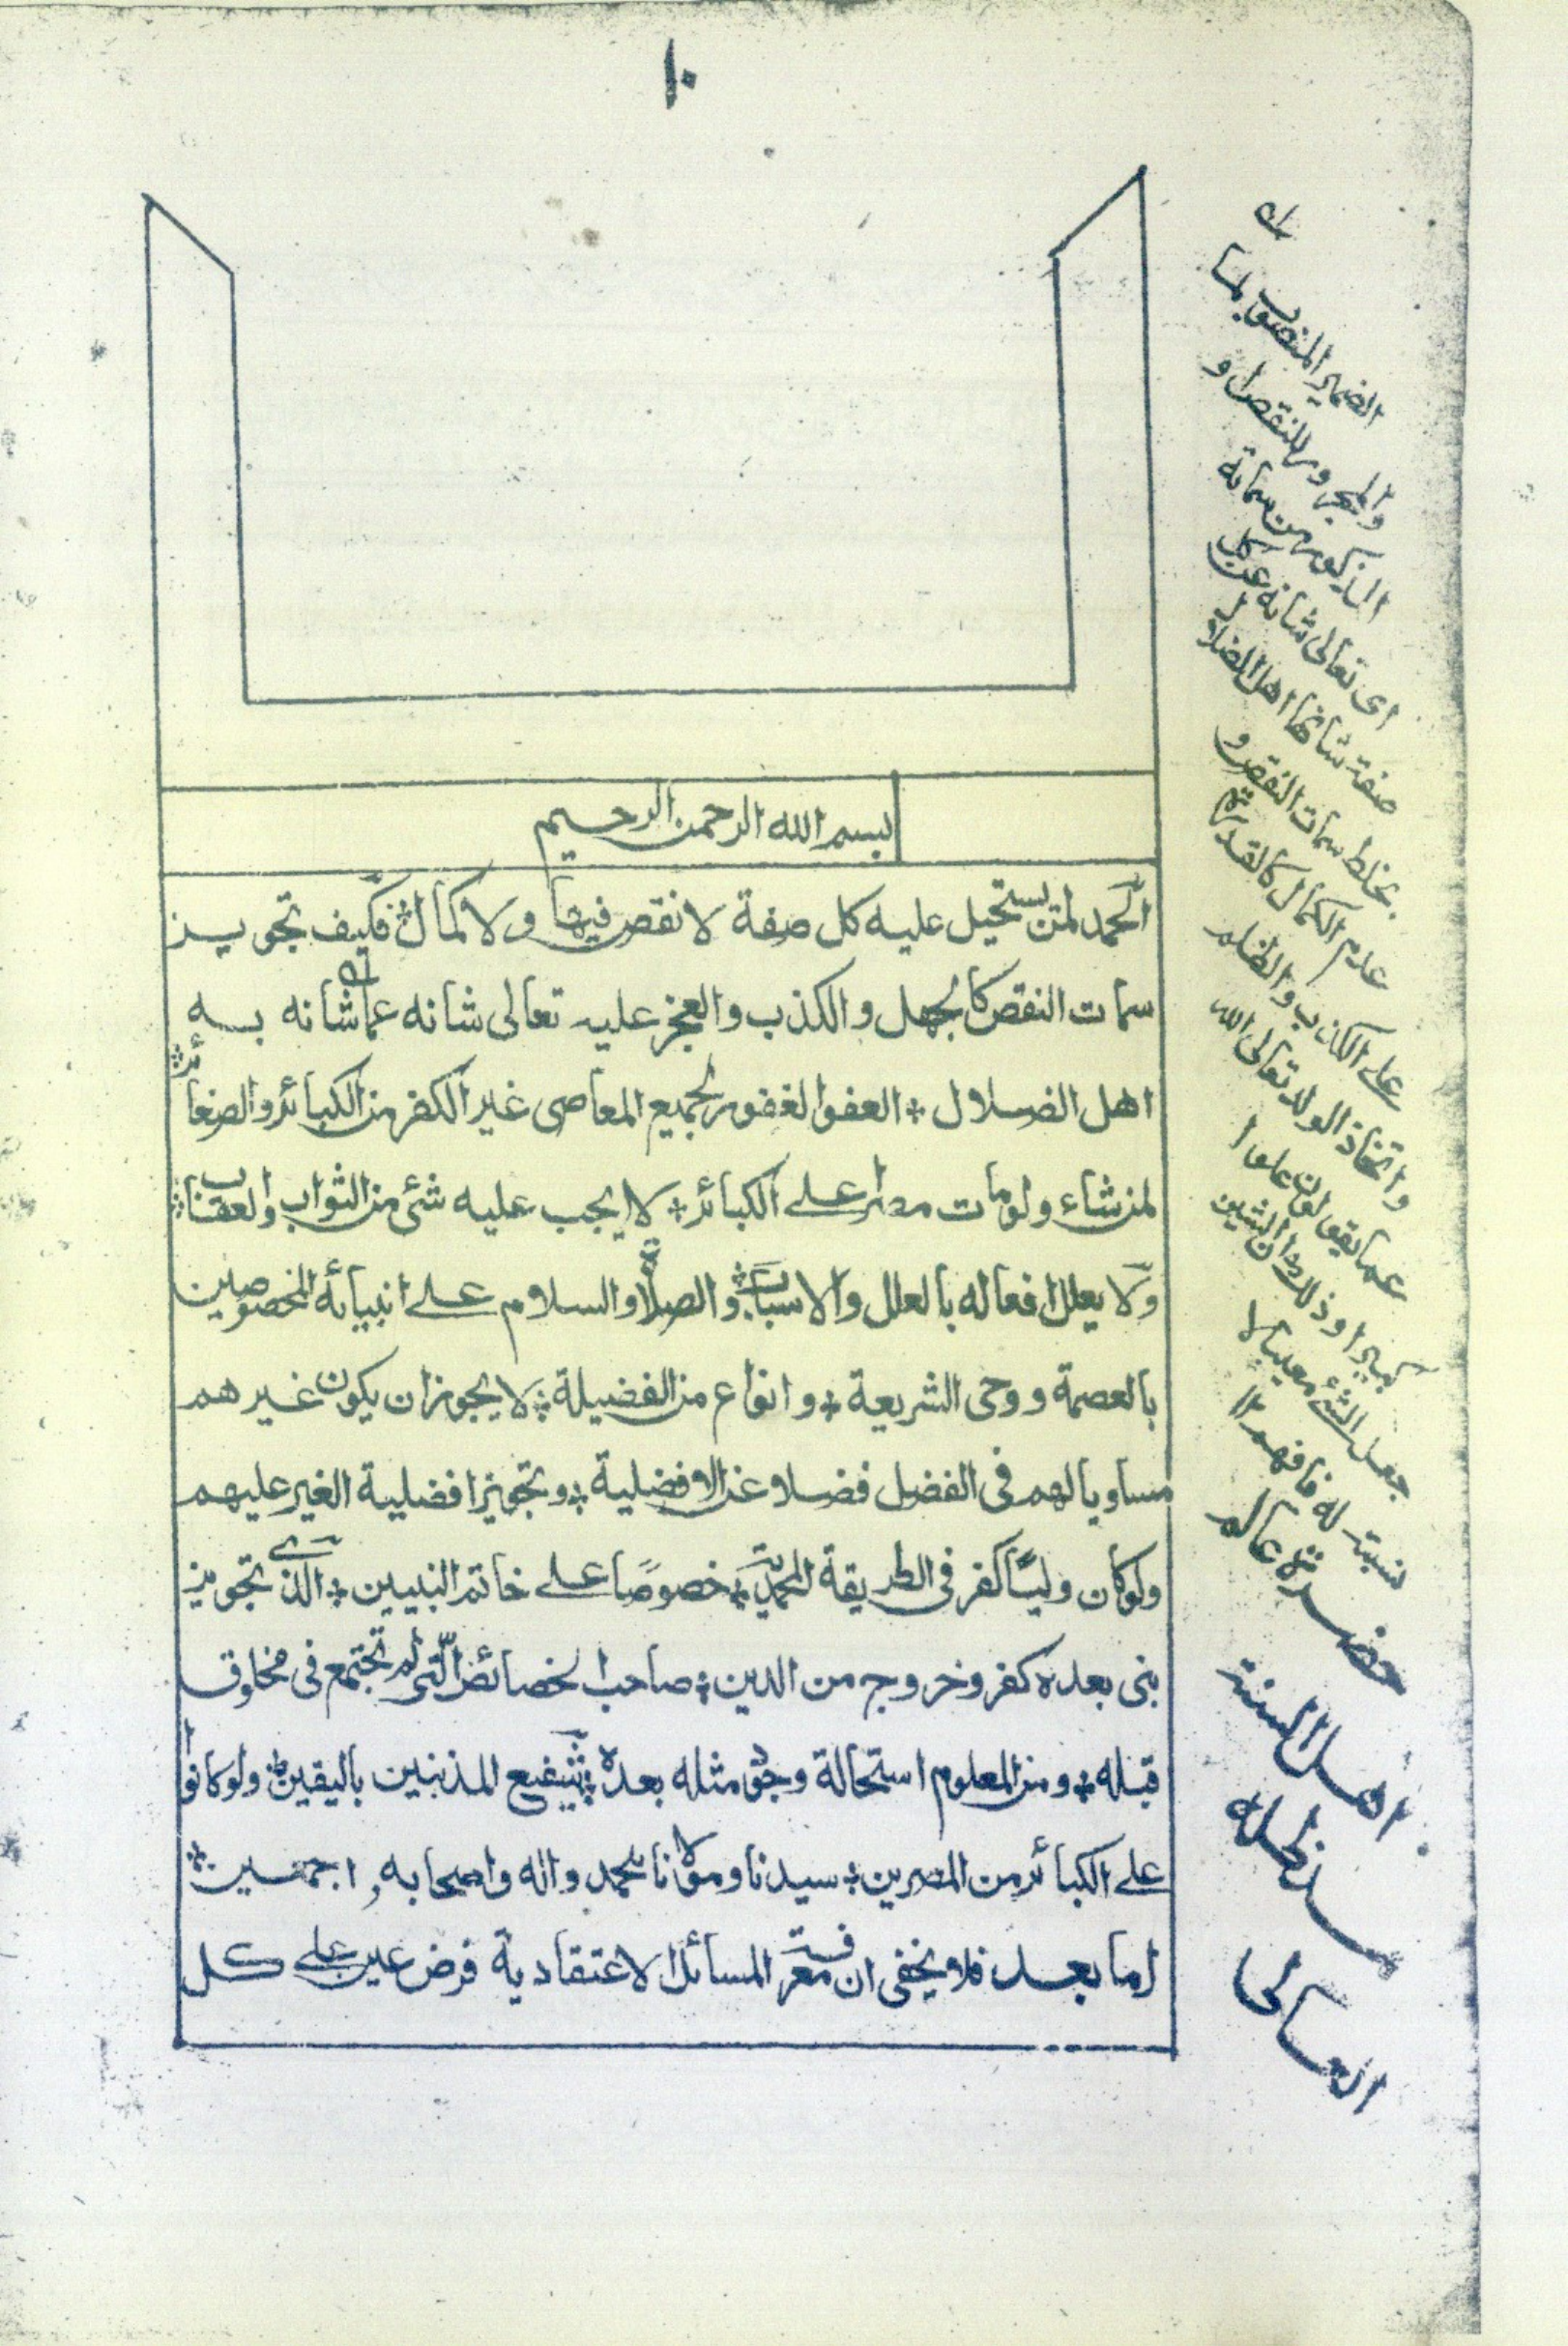 ١٠
بسم الله الرحمن الرحيم
الحمد لمن يستحيل عليه كل صفة لا نقص فيها ولا كمال؞ فكيف تجويز
سمات النقص كالجهل والكذب والعجز عليه تعالى شانه عما شانه به
اهل الضلال؞ العفو الغفور لجميع المعاصى غير الكفر من الكبائر والصغائر؞
لمن شاء ولو مات مصرا على الكبائر؞ لا يجب عليه شئ من الثواب والعقاب؞
ولا يعلل افعاله بالعلل والاسباب؞ والصلاة والسلام على انبيائه المخصوصين
بالعصمة ووحى الشريعة؞ وانواع من الفضيلة؞ لا يجوز ان يكون غيرهم
مساويا لهم فى الفضل فضلا عن الافضلية؞ وتجويز افضلية الغير عليهم
ولو كان وليًا كفر فى الطريقة المحمدية؞ خصوصًا على خاتم النبيين؞ الذى تجويز
نبى بعده كفر وخروج من الدين؞ صاحب الخصائص الّتى لم تجتمع فى مخلوق
قبله؞ ومن المعلوم استحالة وجود مثله بعده؞ شفيع المذنبين باليقين؞ ولو كانوا
على الكبائر من المصرين؞ سيدنا ومولانا محمد واله واصحابه اجمعين؞
اما بعد فلا يخفى ان معرفة المسائل الاعتقادية فرض عين على كل
الضمير المنصوب لما
والمجرور للنقص او
المذكور من سماته
اى تعالى شانه عن كل
صفة شانها اهل الضلال
بخلط سمات النقص و
عدم الكمال كالقدرة
على الكذب والظلم
واتخاذ الولد تعالى الله
عما يقولون علوا
كبيرا وذلك ان الشين
جعل الشئ معيبا لا
نسبته له فافهم ١٢
حضرة عالم
اهل السنة
مد ظله
العالى